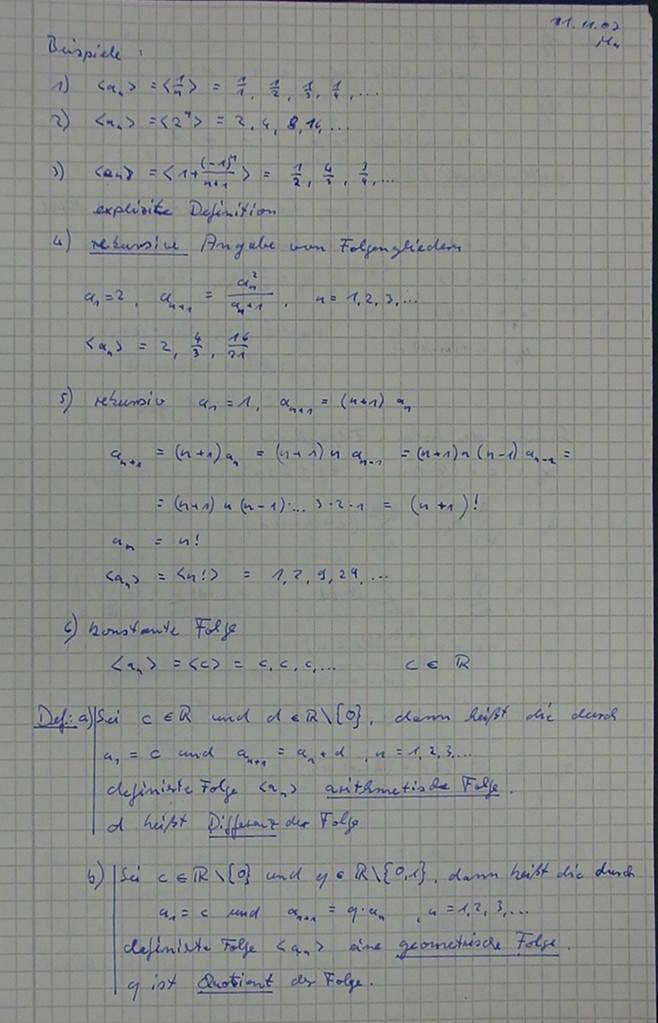 11.11.07
Beispiele:
1) <aₙ> = <1/n> = 1/1, 1/2, 1/3, 1/4, ...
2) <aₙ> = <2ⁿ> = 2, 4, 8, 16, ...
3) <aₙ> = <1 + (-1)ⁿ/(n+1)> = 1/2, 4/3, 3/4, ...
explizite Definition
4) rekursive Angabe von Folgengliedern
a₁ = 2, aₙ₊₁ = aₙ²/(aₙ+1), n = 1, 2, 3, ...
<aₙ> = 2, 4/3, 16/21
5) rekursiv a₁ = 1, aₙ₊₁ = (n+1) aₙ
aₙ₊₁ = (n+1) aₙ = (n+1) n aₙ₋₁ = (n+1) n (n-1) aₙ₋₂ =
= (n+1) n (n-1) · ... 3 · 2 · 1 = (n+1)!
aₙ = n!
<aₙ> = <n!> = 1, 2, 9, 24, ...
6) konstante Folge
<aₙ> = <c> = c, c, c, ... c ∈ ℝ
Def.: a) Sei c ∈ ℝ und d ∈ ℝ\{0}, dann heißt die durch
a₁ = c und aₙ₊₁ = aₙ + d, n = 1, 2, 3, ...
definierte Folge <aₙ> arithmetische Folge.
d heißt Differenz der Folge
b) Sei c ∈ ℝ\{0} und q ∈ ℝ\{0,1}, dann heißt die durch
a₁ = c und aₙ₊₁ = q · aₙ, n = 1, 2, 3, ...
definierte Folge <aₙ> eine geometrische Folge.
q ist Quotient der Folge.